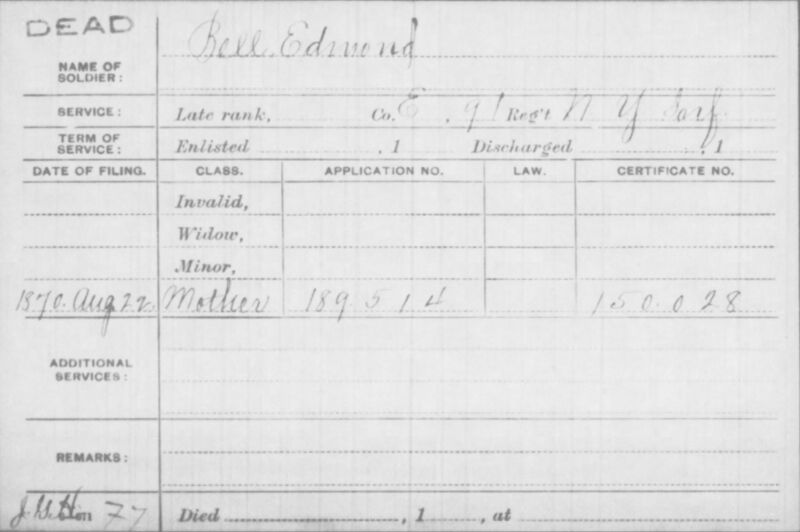 DEAD
Bell Edmond
NAME OF SOLDIER:
SERVICE: Late rank, Co. E, 91 Reg't N Y Inf.
TERM OF SERVICE: Enlisted , 1 Discharged , 1
DATE OF FILING. CLASS. APPLICATION NO. LAW. CERTIFICATE NO.
Invalid,
Widow,
Minor,
1870. Aug 22. Mother 189.514 150.028
ADDITIONAL SERVICES:
REMARKS:
77 Died , 1 , at